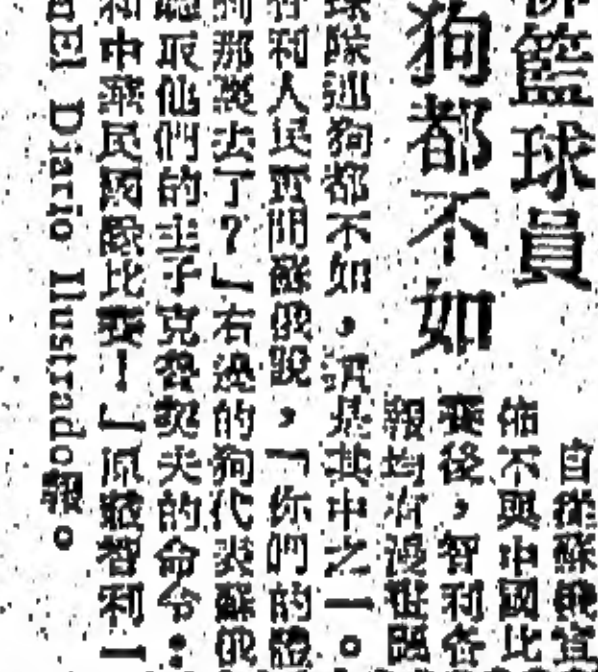 籃球員
狗都不如
自從蘇俄宣
佈不與中國比
賽後，智利各
報均有漫畫
球隊連狗都不如，這是其中之一。
利人民質問蘇俄說，「你們的體
那裏去了？」右邊的狗代表蘇俄
聽取他們的主子克魯契夫的命令：
和中華民國隊比賽！」原載智利一
El Diario Ilustrado報。